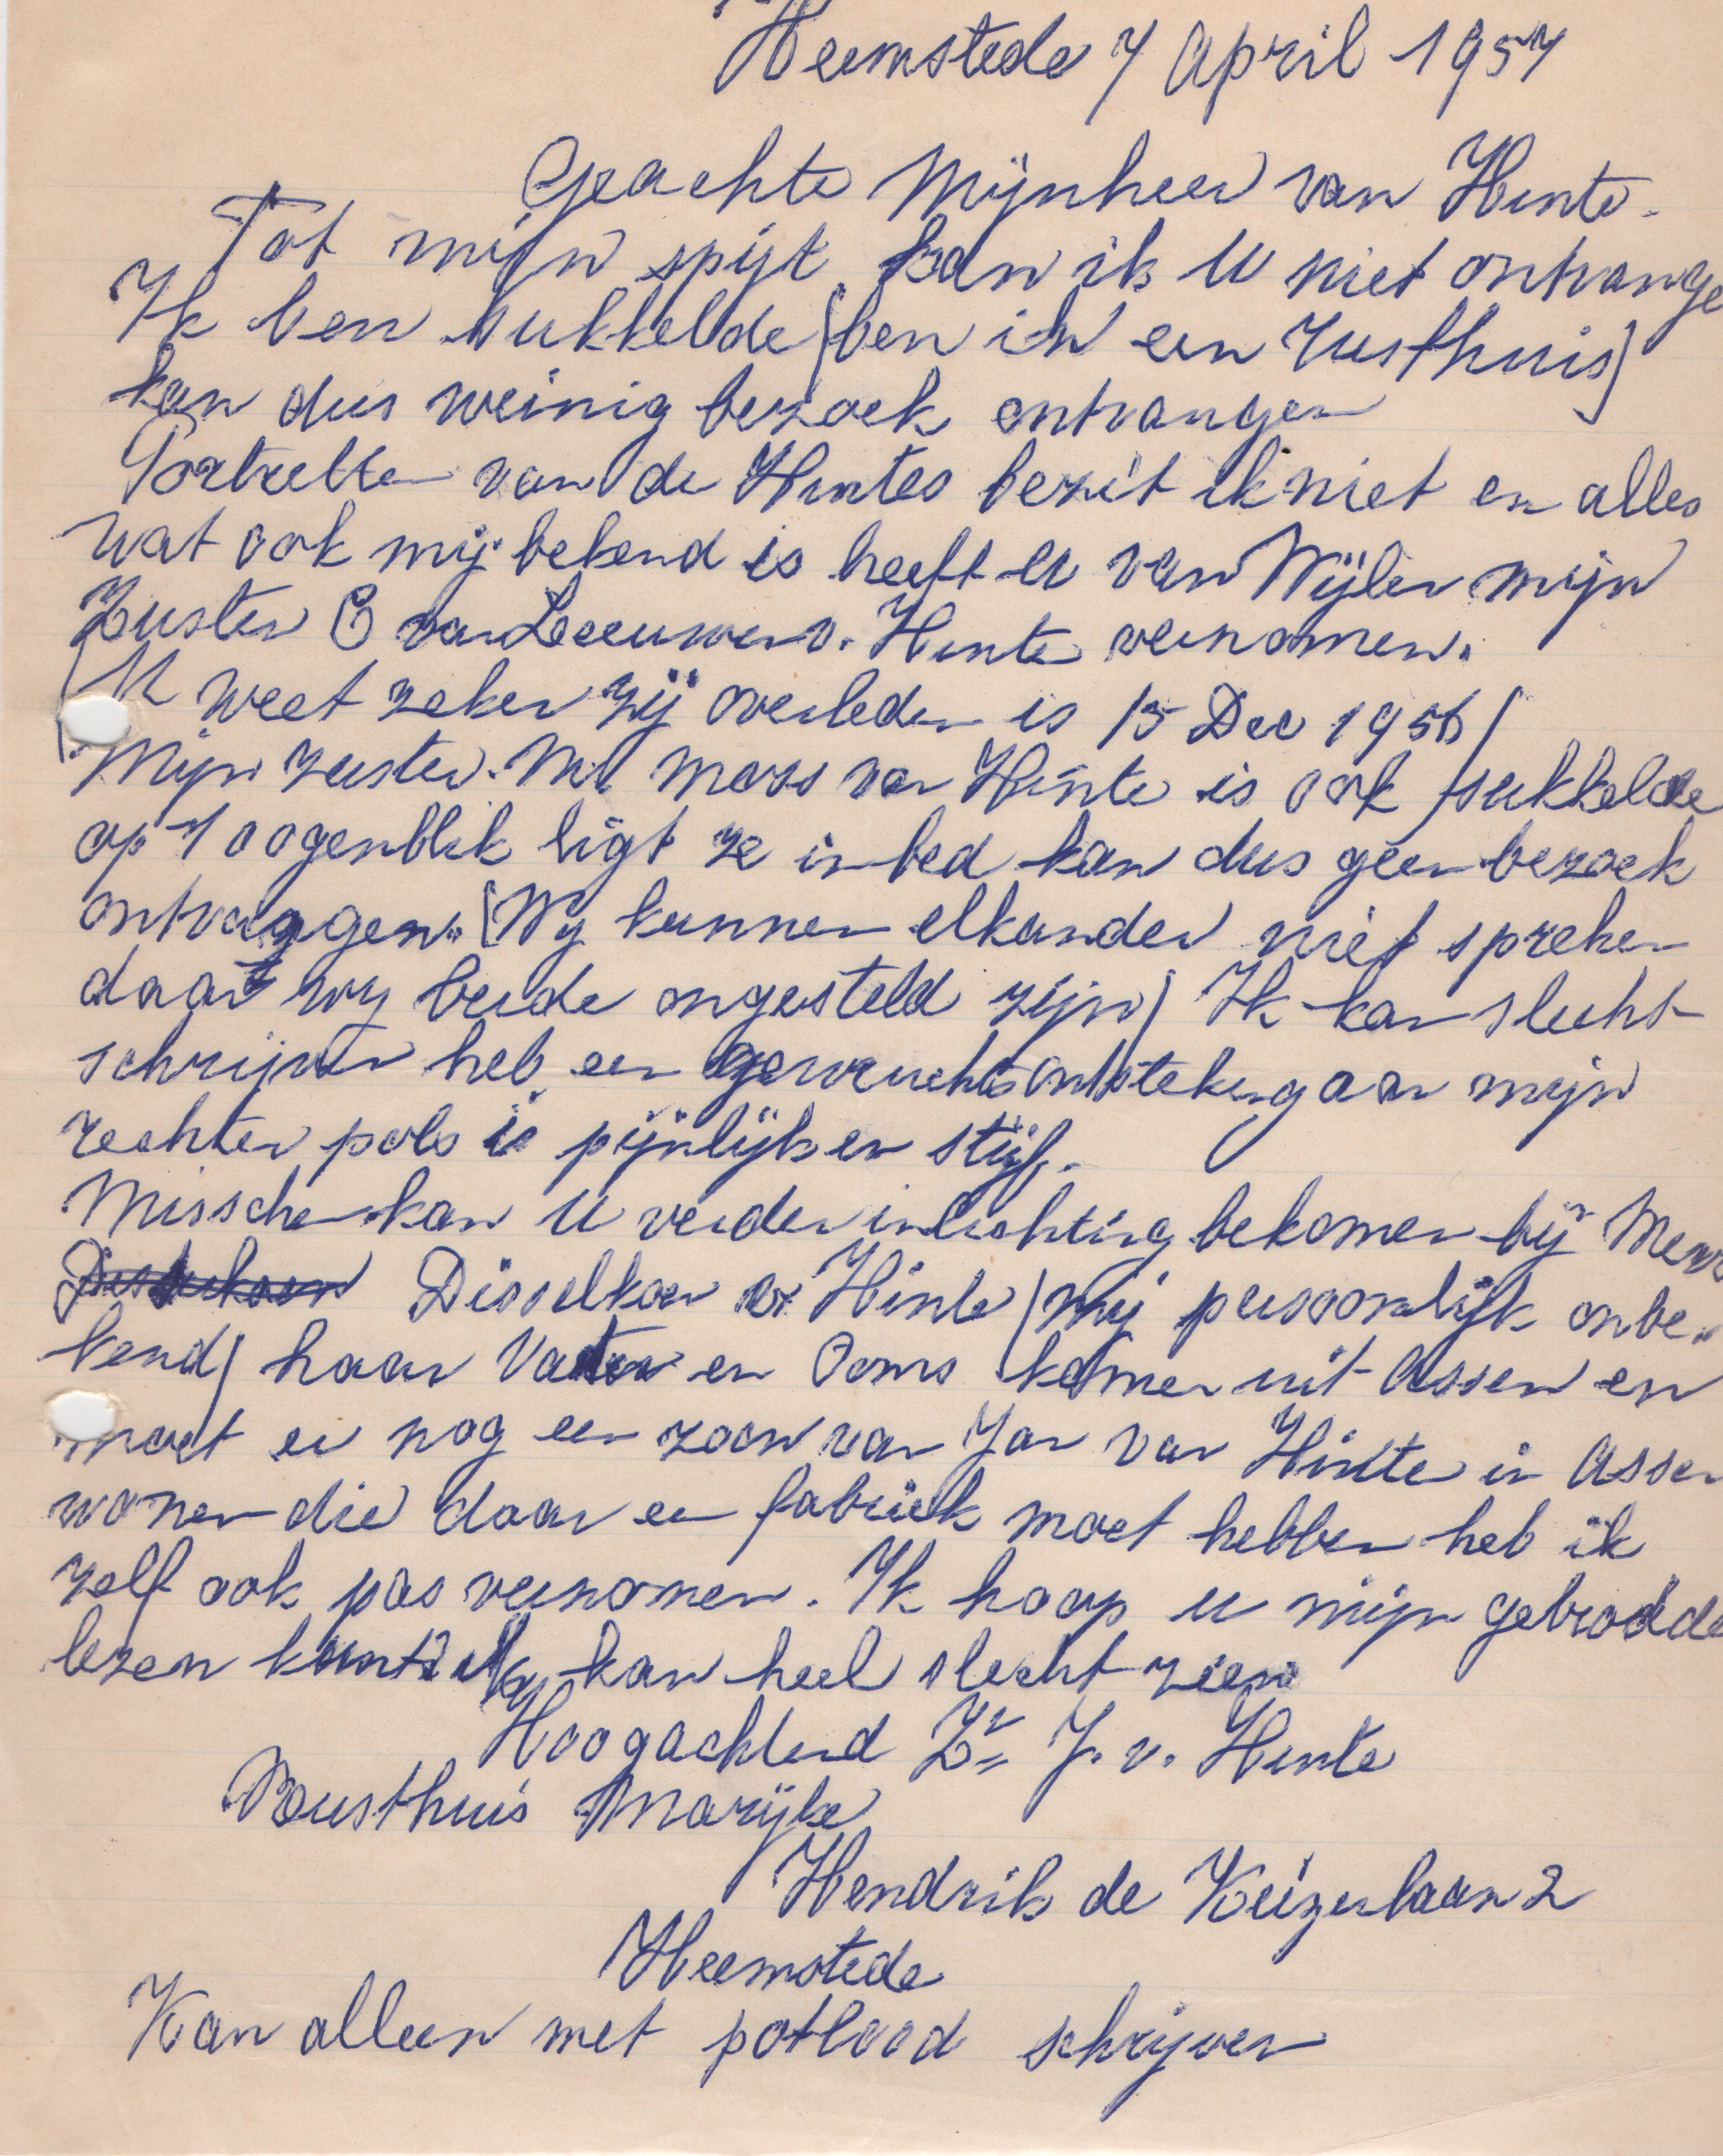 Heemstede 7 April 1957
Geachte Mijnheer van Hinte.
Tot mijn spijt kan ik U niet ontvange
Ik ben sukkelde (ben in een rusthuis)
kan dus weinig bezoek ontvangen
Portretten van de Hintes bezit ik niet en alles
wat ook mij bekend is heeft U van Wijlen mijn
Zuster E van Leeeuwen v. Hinte vernomen.
(U weet zeker zij overleden is 15 Dec 1956)
Mijn zuster. M. Moss van Hinte is ook sukkelde
op 't oogenblik ligt ze in bed kan dus geen bezoek
ontvangen. (Wy kunnen elkander niet spreken
daar wy beide ongesteld zijn) Ik kan slecht
schrijven heb een gewrichtsontsteking aan mijn
rechter pols is pijnlijk en stijf.
Misschen kan U verder inlichting bekomen bij Mevr
Disselkoen v. Hinte (mij persoonlijk onbe„
kend) haar Vader en Ooms komen uit Assen en
moet er nog een zoon van Jan van Hinte in Assen
wonen die daar en fabriek moet hebben heb ik
zelf ook pas vernomen. Ik hoop U mijn gebrodde
lezen kunt ik kan heel slecht zien
Hoogachtend Zr J. v. Hinte
Rusthuis Marijke
Hendrik de Keizerlaan 2
Heemstede
Kan alleen met potlood schrijven